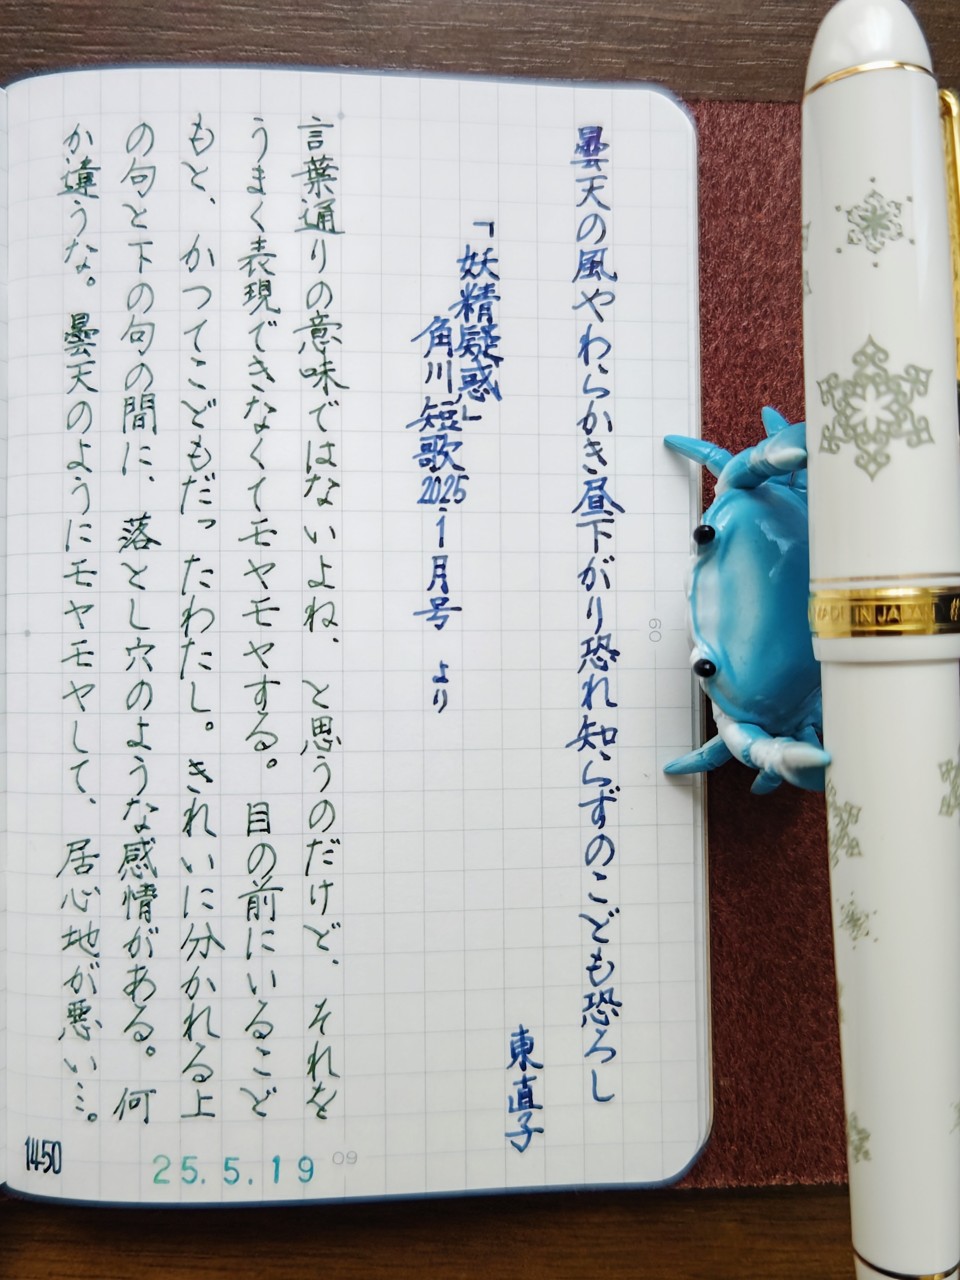 曇天の風やわらかき昼下がり恐れ知らずのこども恐ろし
東直子
「妖精疑惑」
角川短歌2025.1月号 より
言葉通りの意味ではないよね、と思うのだけど、それを
うまく表現できなくてモヤモヤする。目の前にいるこど
もと、かつてこどもだったわたし。きれいに分かれる上
の句と下の句の間に、落とし穴のような感情がある。何
か違うな。曇天のようにモヤモヤして、居心地が悪い…。
1450
25.5.19
09
60
MADE IN JAPAN